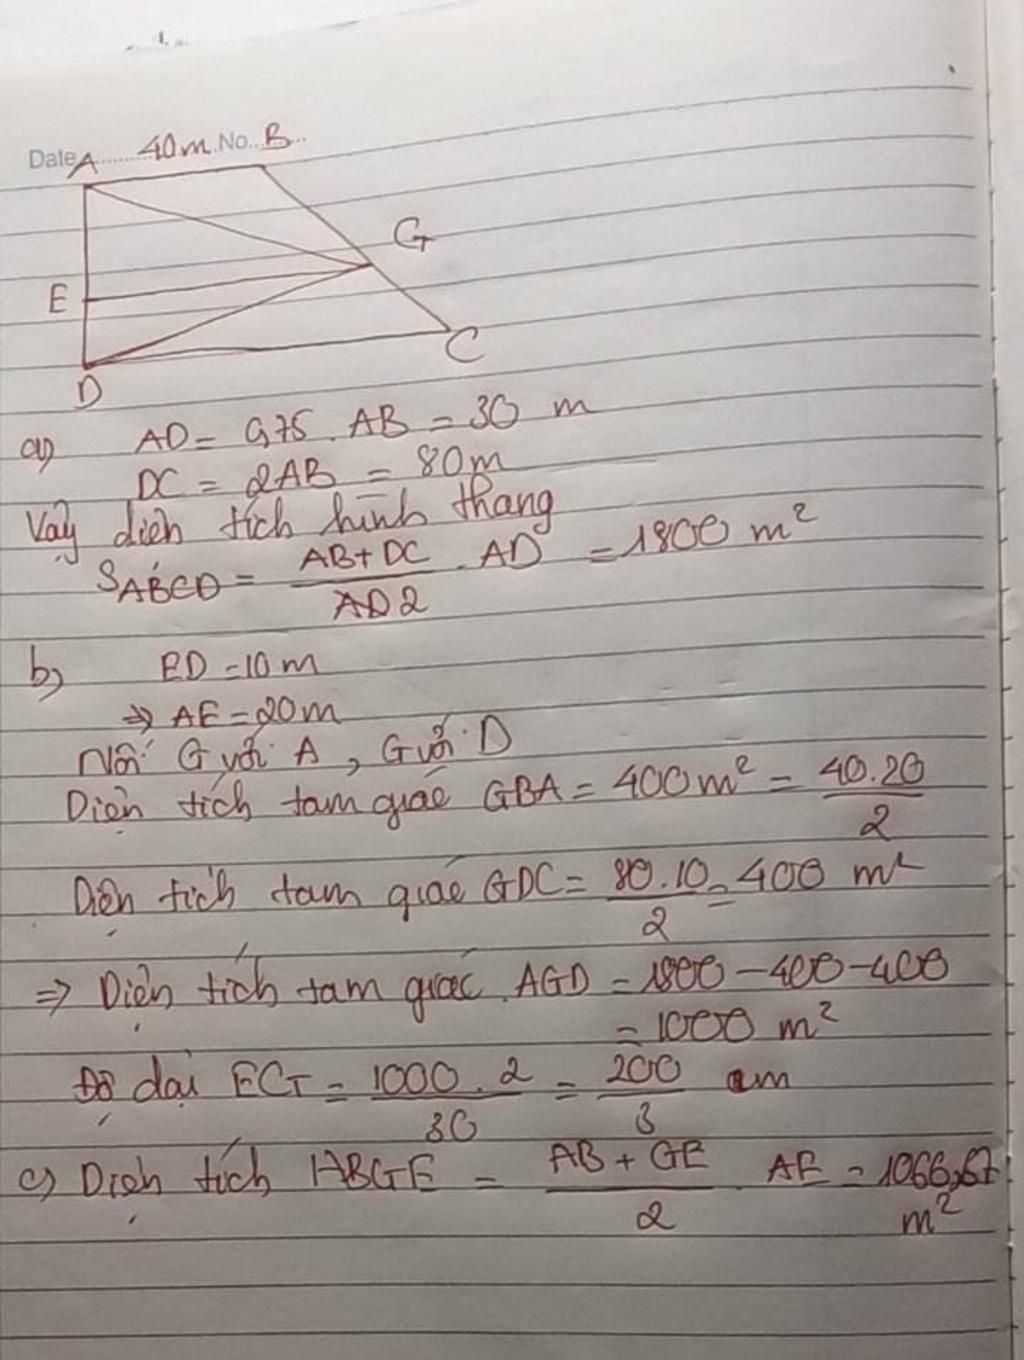 Date A 40m No. B
G
E
C
D
a) AD = 0,75 . AB = 30 m
DC = 2AB = 80m
Vậy diện tích hình thang
SABCD = AB+DC / AD 2 . AD = 1800 m²
b) ED = 10 m
⇒ AE = 20m
Nối G với A, G với D
Diện tích tam giác GBA = 400m² = 40.20 / 2
Diện tích tam giác GDC = 80.10 / 2 = 400 m²
⇒ Diện tích tam giác AGD = 1800 - 400 - 400
= 1000 m²
Độ dài EG = 1000 . 2 / 30 = 200 / 3 m
c) Diện tích ABGE = AB + GE / 2 . AE = 1066,67
m²